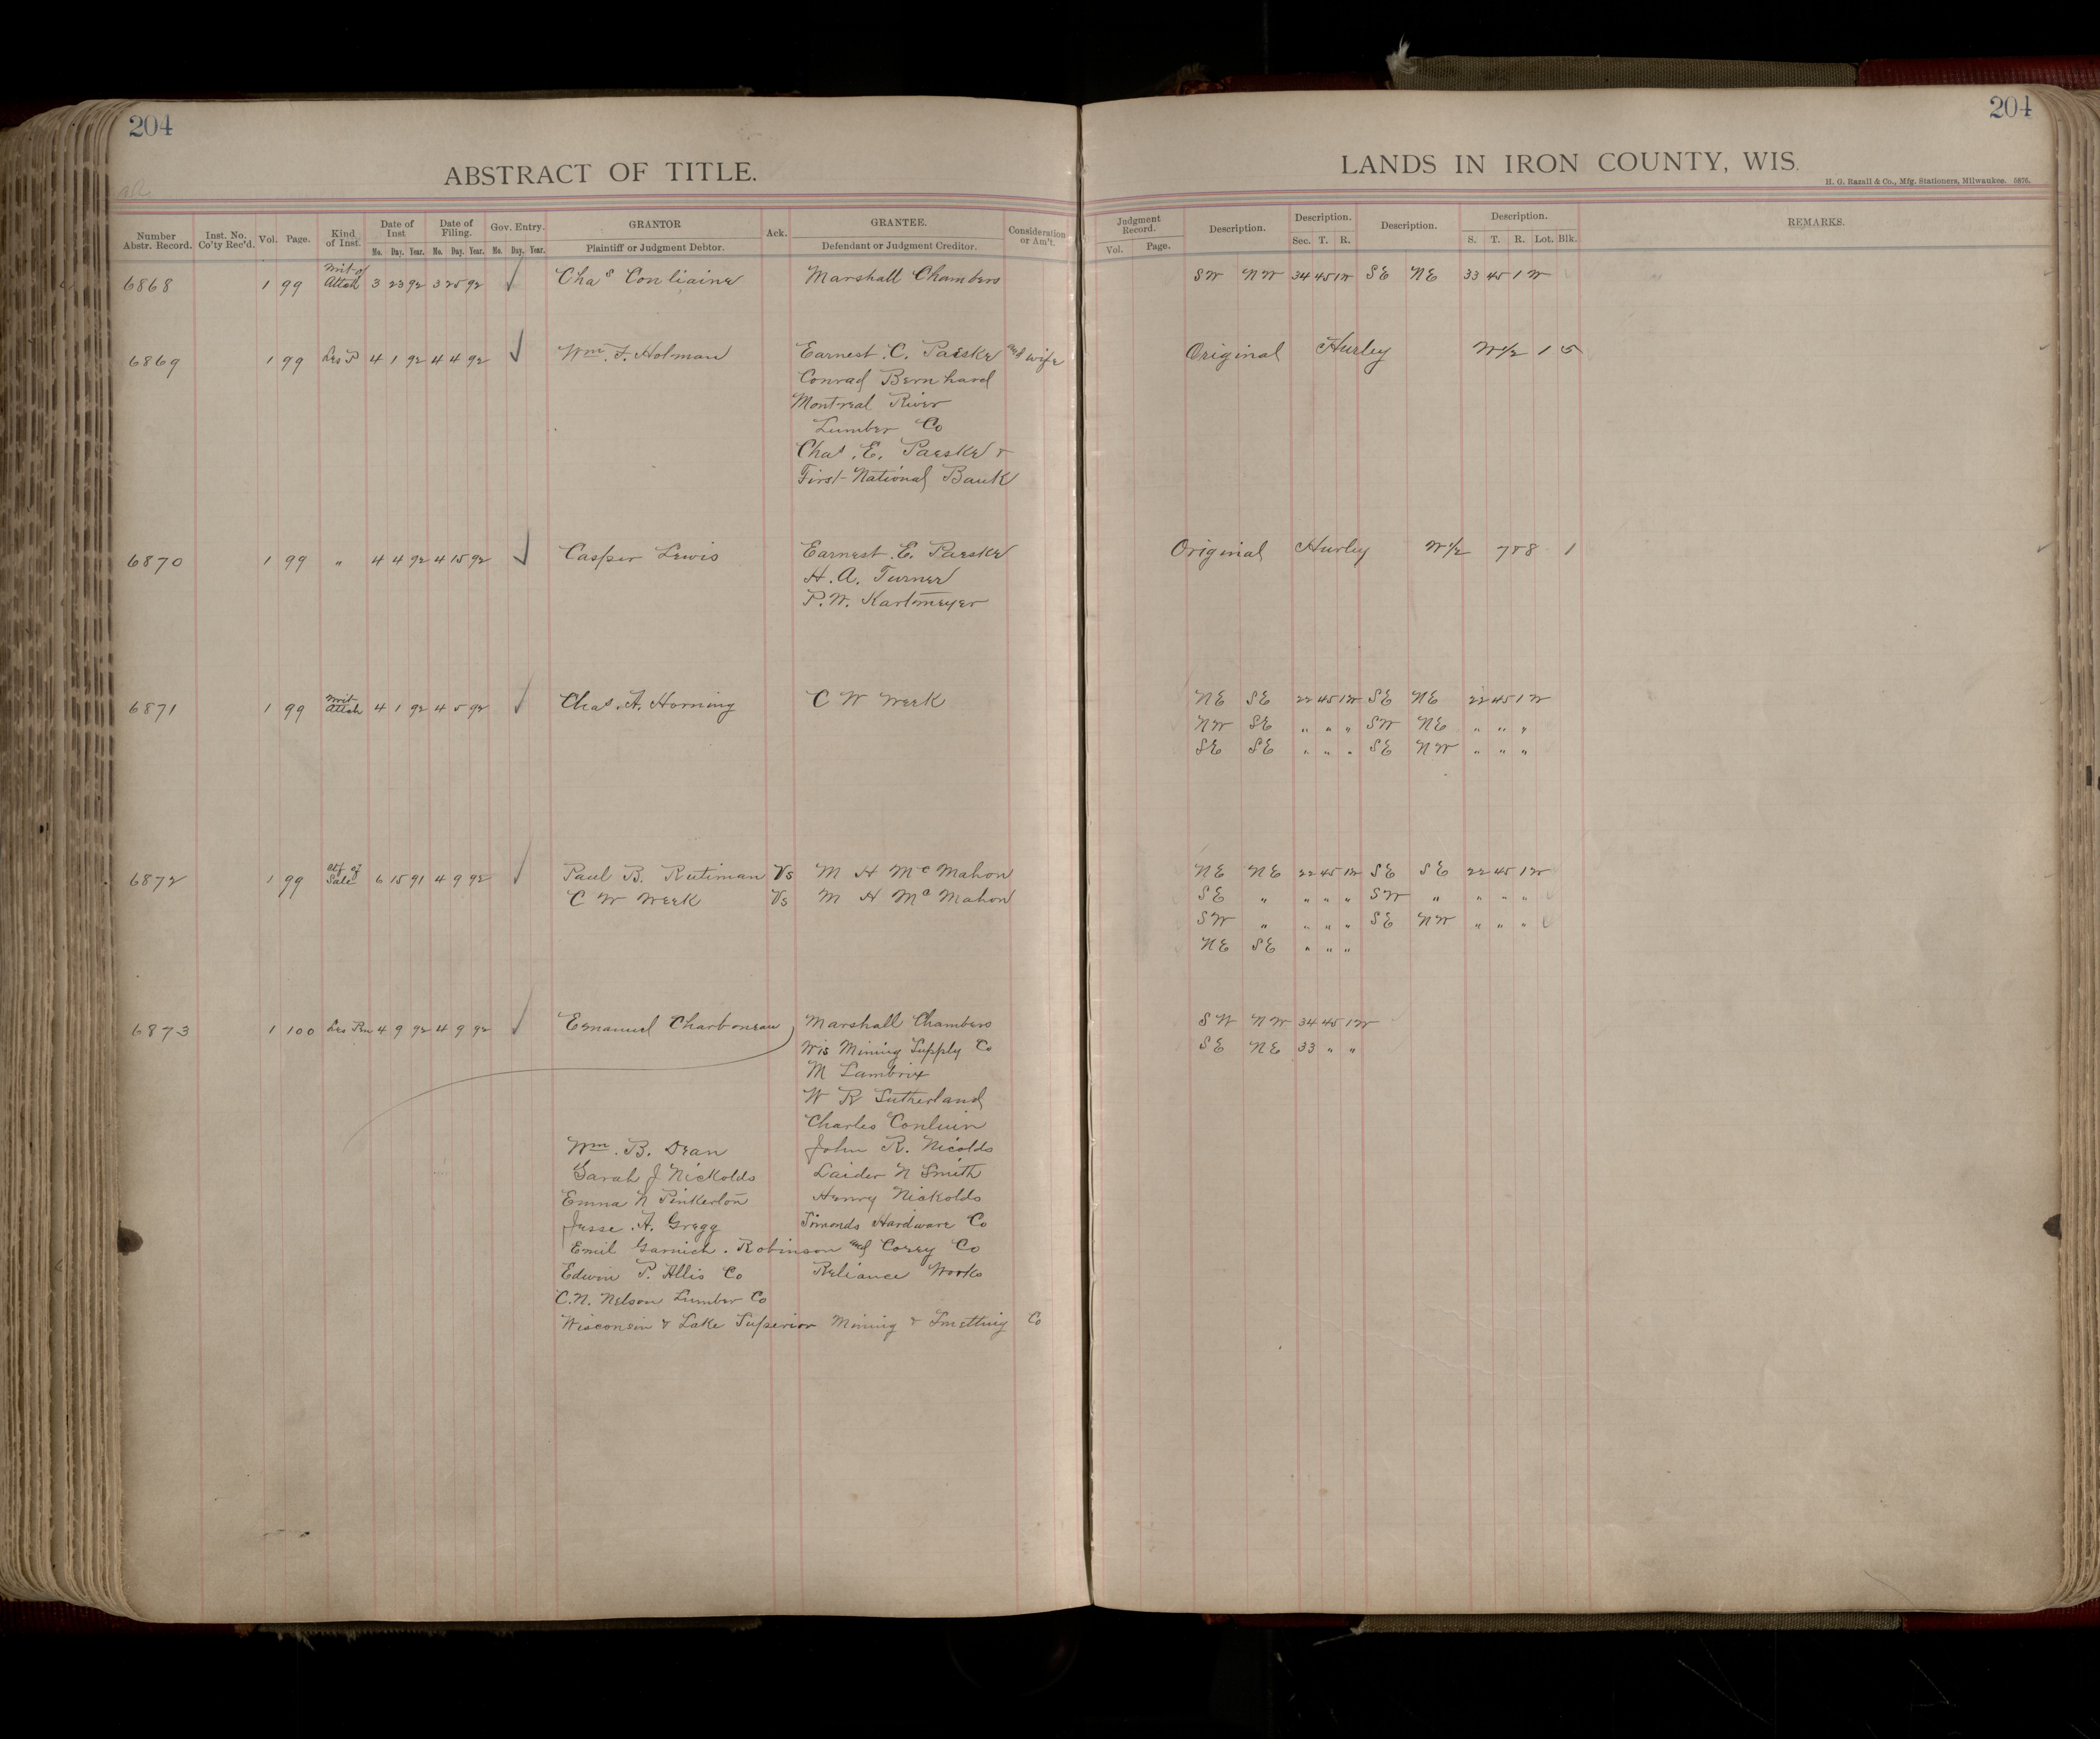 204
204
ABSTRACT OF TITLE.
LANDS IN IRON COUNTY, WIS.
H. G. Razall & Co., Mfg. Stationers, Milwaukee. 5876.
Number Abstr. Record. Inst. No. Co'ty Rec'd. Vol. Page. Kind of Inst. Date of Inst Mo. Day. Year. Date of Filing. Mo. Day. Year. Gov. Entry. Mo. Day. Year. GRANTOR Plaintiff or Judgment Debtor. Ack. GRANTEE. Defendant or Judgment Creditor. Consideration or Am't. Judgment Record. Vol. Page. Description. Description. Sec. T. R. Description. Description. S. T. R. Lot. Blk. REMARKS.
6868 1 99 Writ of Attch 3 23 92 3 25 92 Chas Conliaine Marshall Chambers SW NW 34 45 1W SE NE 33 45 1W
6869 1 99 Lis P 4 1 92 4 4 92 Wm. F. Holman Earnest. C. Paeske and wife Original Hurley W1/2 1 5
Conrad Bernhard
Montreal River
Lumber Co
Chas. E. Paeske &
First National Bank
6870 1 99 " 4 4 92 4 15 92 Casper Lewis Earnest. E. Paeske Original Hurley W1/2 7&8 1
H. A. Turner
P. W. Kartmeyer
6871 1 99 Writ Attch 4 1 92 4 5 92 Chas. A. Horning C W Week NE SE 22 45 1W SE NE 22 45 1W
NW SE " " " SW NE " " "
SE SE " " " SE NW " " "
6872 1 99 Ctf of Sale 6 15 91 4 9 92 Paul B. Rutiman Vs M H McMahon NE NE 22 45 1W SE SE 22 45 1W
C W Week Vs M H McMahon SE " " " " SW " " " "
SW " " " " SE NW " " "
NE SE " " "
6873 1 100 Lis Pen 4 9 92 4 9 92 Emanuel Charboneau Marshall Chambers SW NW 34 45 1W
Wis Mining Supply Co SE NE 33 " "
M Lambrix
W R Sutherland
Charles Conluin
Wm. B. Dean John R. Nicolds
Sarah J Nickolds Laider N Smith
Emma N Pinkerton Henry Nickolds
Jesse. A. Gregg Simonds Hardware Co
Emil Garnich. Robinson and Corey Co
Edwin P. Allis Co Reliance Works
C. N. Nelson Lumber Co
Wisconsin & Lake Superior Mining & Smelting Co